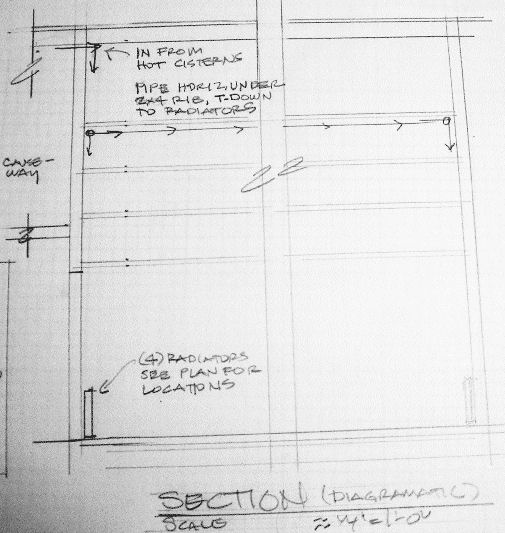 IN FROM
HOT CISTERNS
PIPE HORIZ, UNDER
2x4 RIB, T-DOWN
TO RADIATORS
CAUSE-
WAY
(4) RADIATORS
SEE PLAN FOR
LOCATIONS
SECTION (DIAGRAMATIC)
SCALE ≈ 1/4"=1'-0"